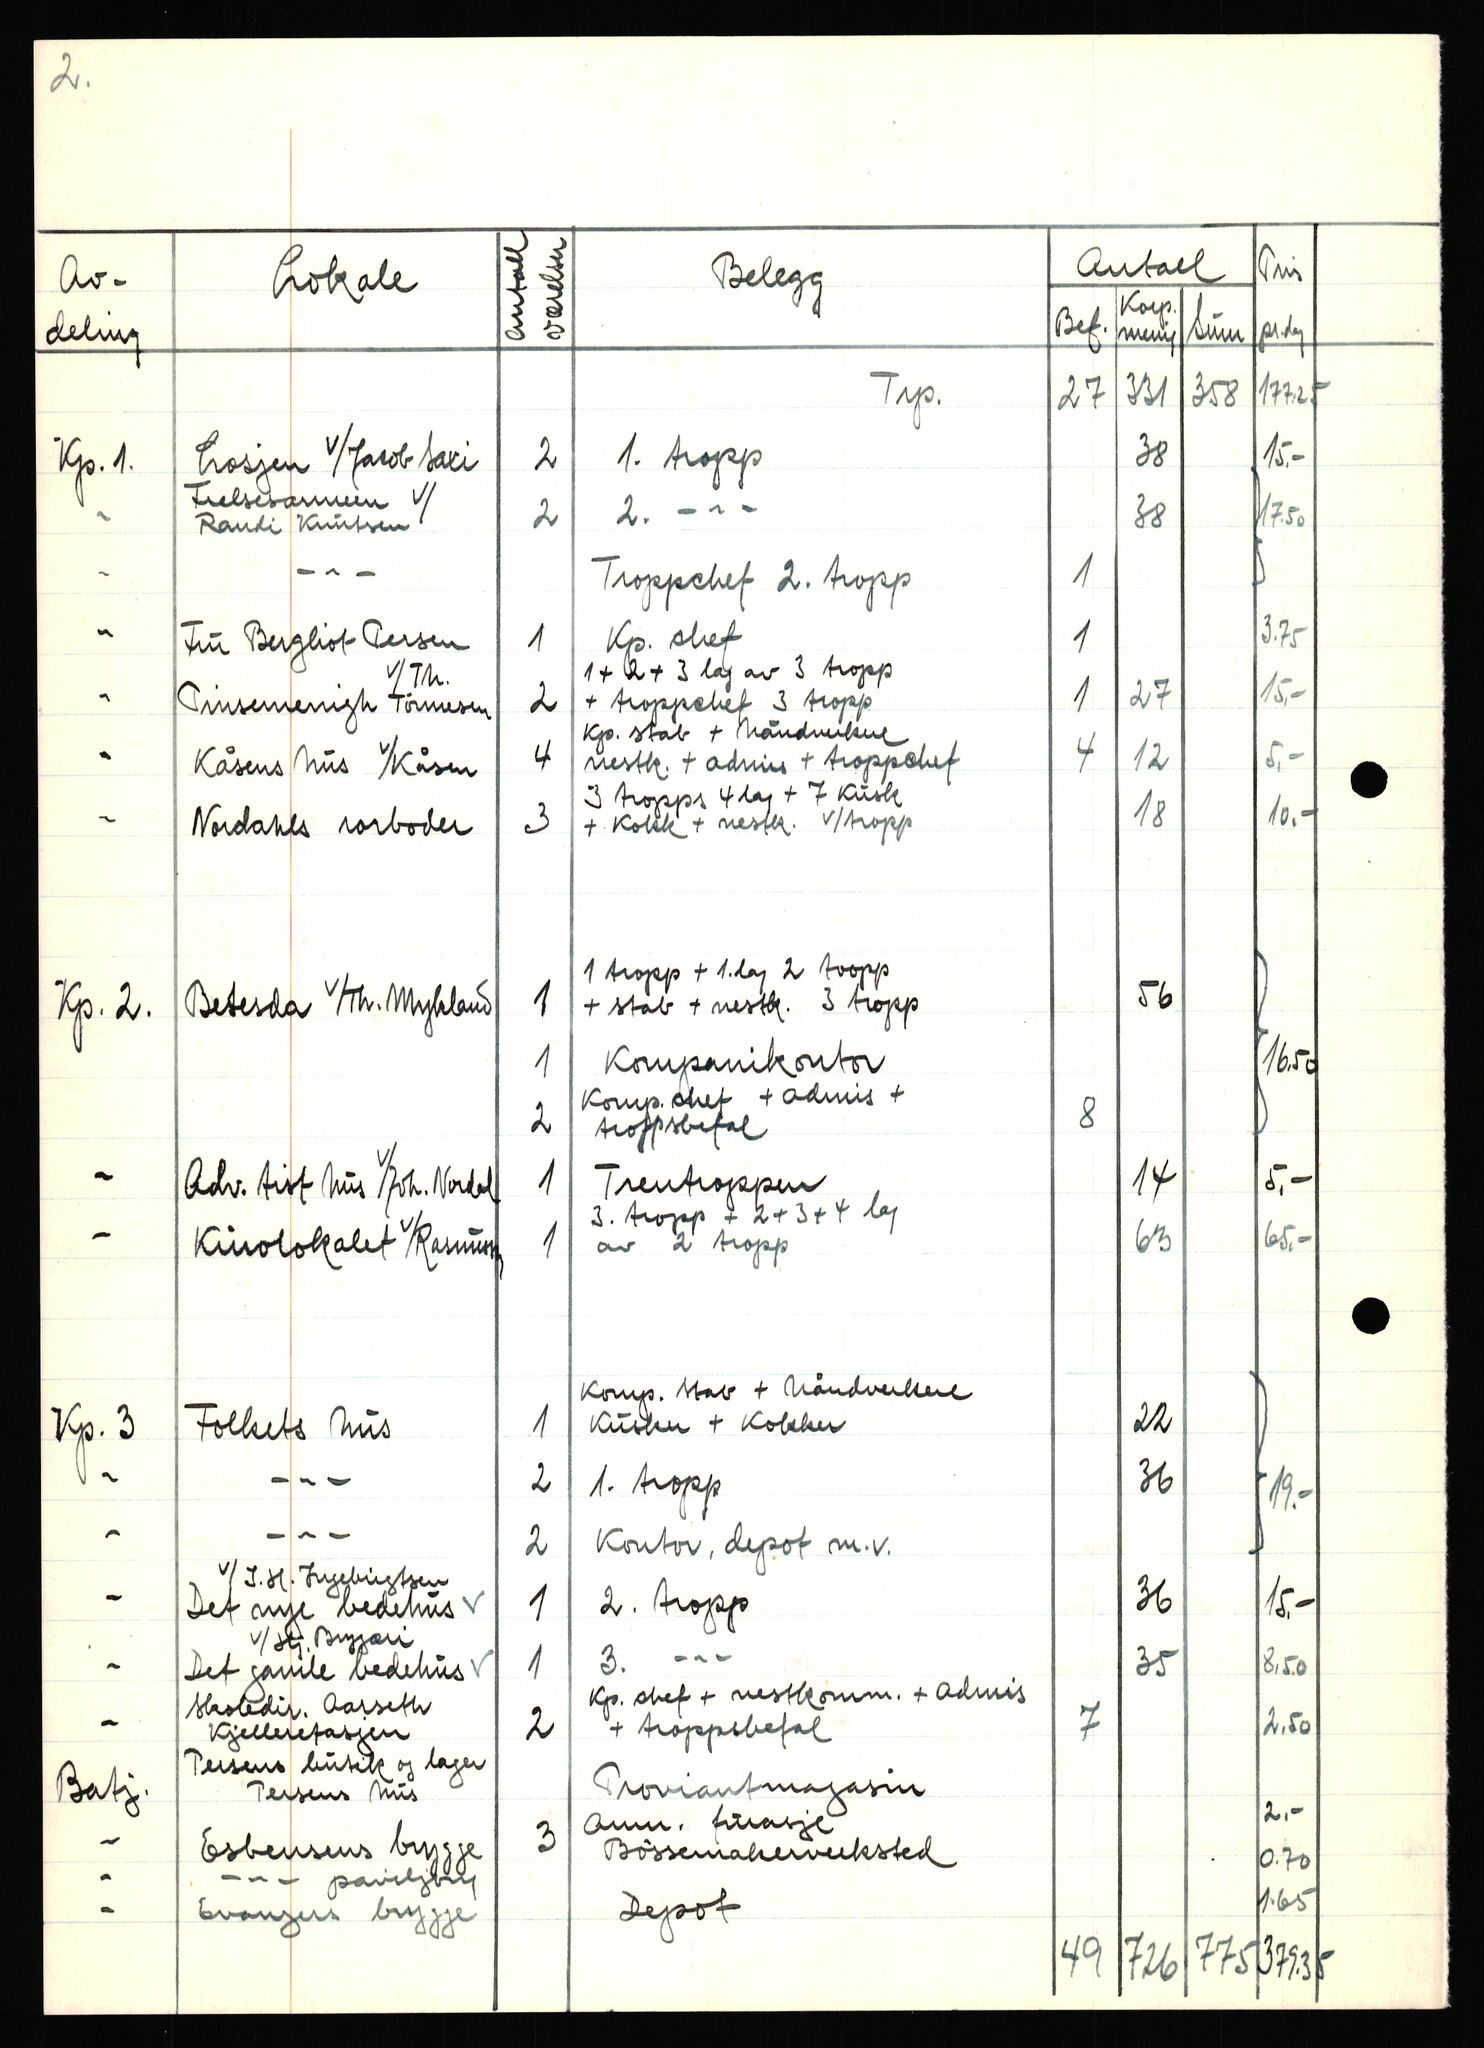 2.
Av-
deling Lokale Antall værelser Belegg Antall Pris
Bef. Korp. menig Sum pr. dag
Trp. 27 331 358 177.25
Kp. 1. Losjen v/Jacob Saxi 2 1. tropp 38 15.-
Frelsesarmeen v/
" Randi Knutsen 2 2. -"- 38 17.50
" -"- Troppchef 2. tropp 1
" Fru Bergliot Persen 1 Kp. chef 1 3.75
v/Th. 1+2+3 lag av 3 tropp
" Pinsemenigh Tönnesen 2 + troppchef 3 tropp 1 27 15.-
Kp. stab + håndverkere
" Kåsens hus v/Kåsen 4 nestk. + admis + troppchef 4 12 5.-
3 tropps 4 lag + 7 kusk
" Nordahls rorboder 3 + kokk + nestk. v/tropp 18 10.-
1 tropp + 1. lag 2 tropp
Kp. 2. Betesda v/Th. Myhland 1 + stab + nestk. 3 tropp 56
1 Kompanikontor 16.50
Komp. chef + admis +
2 troppsbefal 8
" Adv. tist hus v/Joh. Nordal 1 Trentroppen 14 5.-
3. tropp + 2+3+4 lag
" Kinolokalet v/Rasmussen 1 av 2 tropp 63 65.-
Komp. stab + håndverkere
Kp. 3 Folkets hus 1 Kusker + Kokker 22
" -"- 2 1. tropp 36 19.-
" -"- 2 Kontor, depot m.v.
v/ J. H. Ingebrigtsen
" Det nye bedehus v 1 2. tropp 36 15.-
v/Stj. Bryjari
" Det gamle bedehus v 1 3. -"- 35 8.50
Skoledir. Aarseth Kp. chef + nestkomm. + admis
" Kjelleretasjen 2 + troppsbefal 7 2.50
Persens butik og lager
Batj. Persens hus Proviantmagasin
Amm. furasje 2.-
" Esbensens brygge 3 Bössemakerverksted 0.70
" -"- paviljong 1.65
" Evangers brygge Depot
49 726 775 379.35